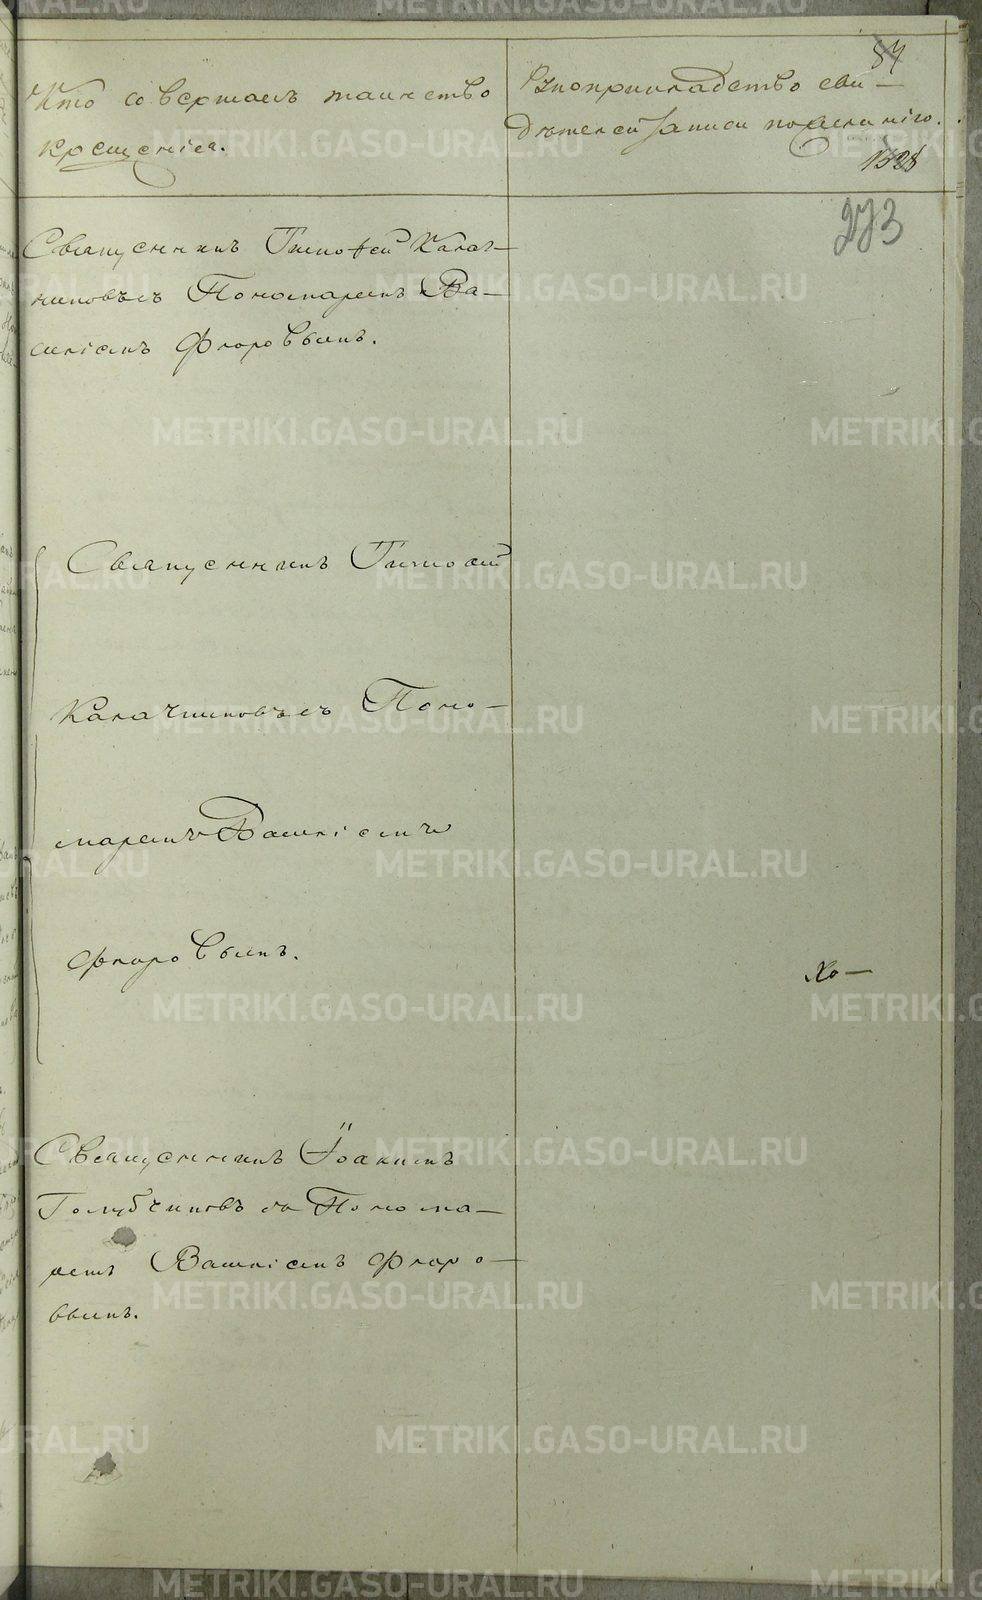 84
Кто совершалъ таинство
крещенія.
Рукоприкладство сви-
дѣтелей записи по желанію.
273
Священникъ Тимофей Калач-
никовъ съ Пономаремъ Ва-
силіемъ Флоровымъ.
Священникъ Тимофей
Калачниковъ съ Поно-
маремъ Василіемъ
Флоровымъ.
Хо-
Священникъ Іоаннъ
Голубчиковъ съ Понома-
ремъ Василіемъ Флоро-
вымъ.
METRIKI.GASO-URAL.RU